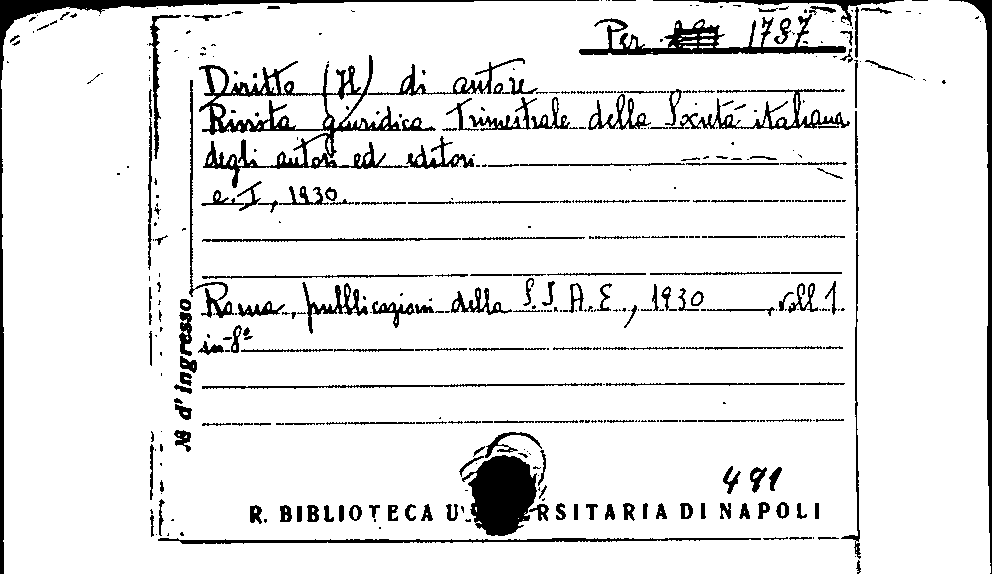 Per 1787
Diritto (Il) di autore
Rivista giuridica trimestrale della Società italiana
degli autori ed editori
a. I, 1930.
Roma, pubblicazioni della S.I.A.E., 1930 , voll 1
in-8º
№ d'ingresso
491
R. BIBLIOTECA UNIVERSITARIA DI NAPOLI